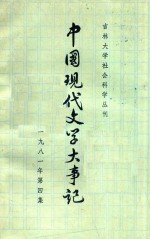 吉林大学社会科学丛刊
中国现代文学大事记
一九八一年第四集